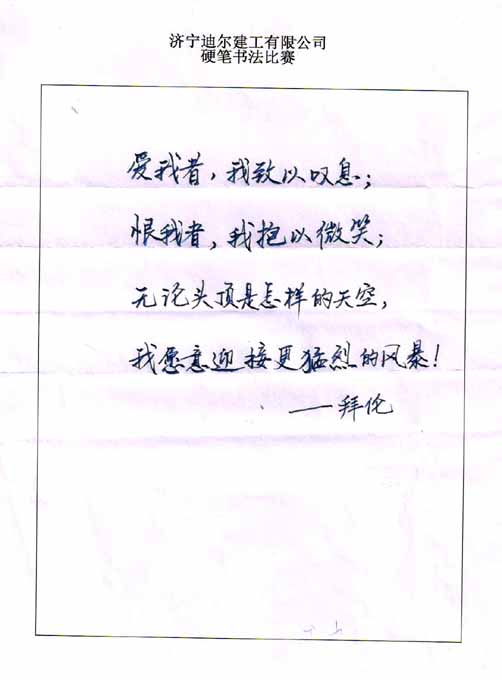 济宁迪尔建工有限公司
硬笔书法比赛
爱我者，我致以叹息；
恨我者，我抱以微笑；
无论头顶是怎样的天空，
我愿意迎接更猛烈的风暴！
——拜伦